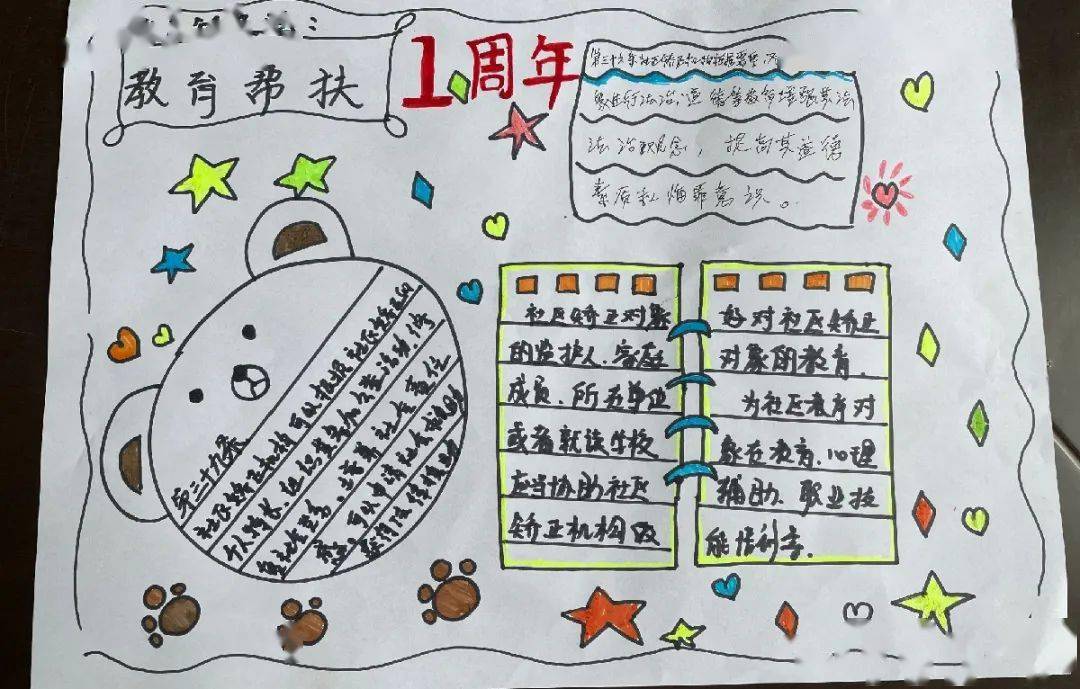 教育帮扶
1周年
第三十六条社区矫正机构根据需要,对
象进行法治、道德等教育,增强其法
法治观念,提高其道德
素质和悔罪意识。
第三十九条
社区矫正机构可以根据社区矫正对象的
个人特长,组织其参加公益活动,修
复社会关系,培养社会责任
感。
可以申请社会救助
获得法律援助
社区矫正对象
的监护人、家庭
成员、所在单位
或者就读学校
应当协助社区
矫正机构做
好对社区矫正
对象的教育.
为社区矫正对
象在教育、心理
辅助、职业技
能培训等.